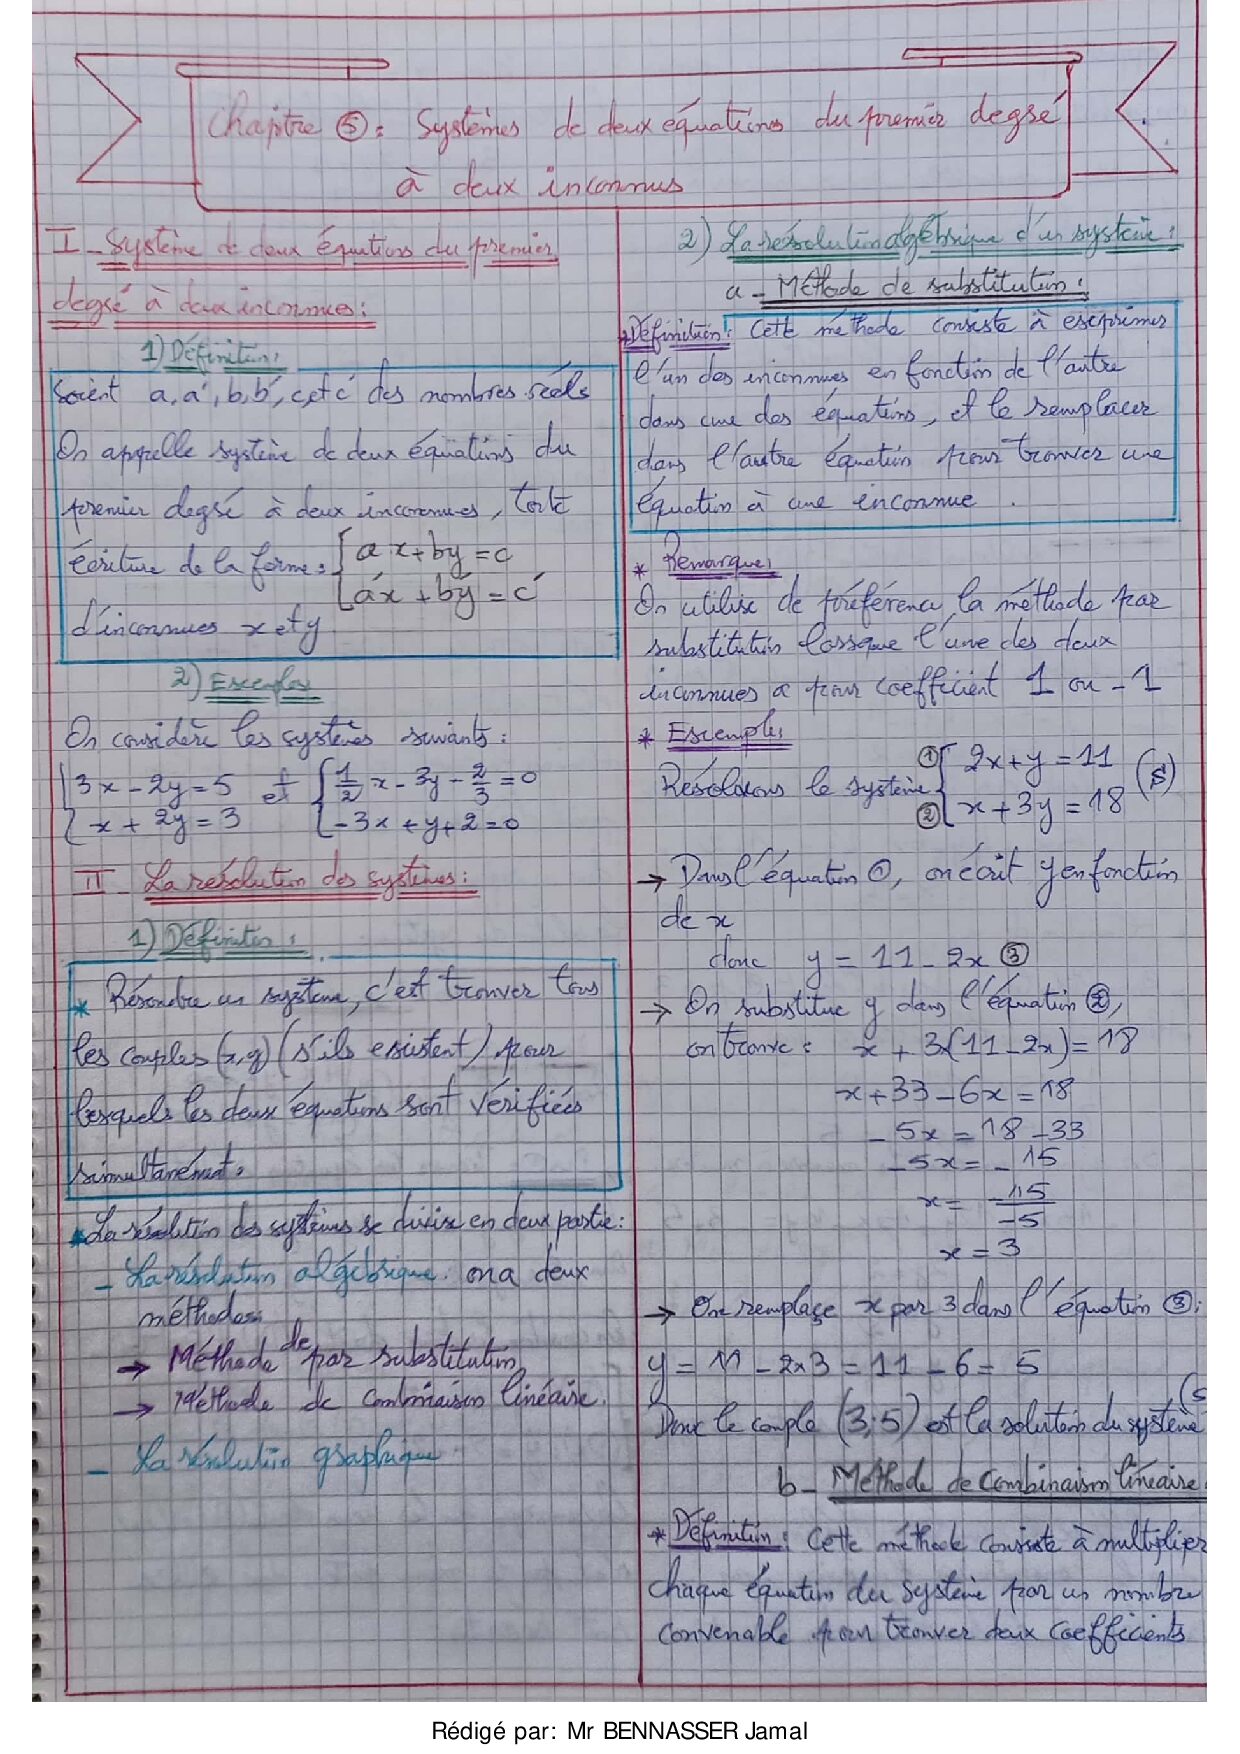 Chapitre ⑤: Systèmes de deux équations du premier degré
à deux inconnus
I - Système de deux équations du premier
degré à deux inconnues:
1) Définition:
Soient a, a', b, b', c, et c' des nombres réels
On appelle système de deux équations du
premier degré à deux inconnues, toute
écriture de la forme: { ax + by = c
{ a'x + b'y = c'
d'inconnues x et y
2) Exemples
On considère les systèmes suivants:
{ 3x - 2y = 5 et { 1/2 x - 3y - 2/3 = 0
{ x + 2y = 3 { -3x + y + 2 = 0
II - La résolution des systèmes:
1) Définition:
* Résoudre un système, c'est trouver tous
les couples (x,y) (s'ils existent) pour
lesquels les deux équations sont vérifiées
simultanément.
* La résolution des systèmes se divise en deux partie:
- La résolution algébrique: on a deux
méthodes
→ Méthode de par substitution
→ Méthode de combinaison linéaire.
- La résolution graphique
2) La résolution algébrique d'un système:
a - Méthode de substitution:
* Définition: Cette méthode consiste à exprimer
l'un des inconnues en fonction de l'autre
dans une des équations, et le remplacer
dans l'autre équation pour trouver une
équation à une inconnue.
* Remarque:
On utilise de préférence la méthode par
substitution lorsque l'une des deux
inconnues a pour coefficient 1 ou -1
* Exemple:
Résolvons le système ① { 2x + y = 11 (S)
② { x + 3y = 18
→ Dans l'équation ①, on écrit y en fonction
de x
donc y = 11 - 2x ③
→ On substitue y dans l'équation ②,
on trouve: x + 3(11 - 2x) = 18
x + 33 - 6x = 18
- 5x = 18 - 33
- 5x = - 15
x = -15/-5
x = 3
→ On remplaçe x par 3 dans l'équation ③:
y = 11 - 2×3 = 11 - 6 = 5
Donc le couple (3;5) est la solution du système (S
b - Méthode de Combinaison linéaire:
* Définition: Cette méthode consiste à multiplier
chaque équation du système par un nombre
convenable pour trouver deux coefficients
Rédigé par: Mr BENNASSER Jamal